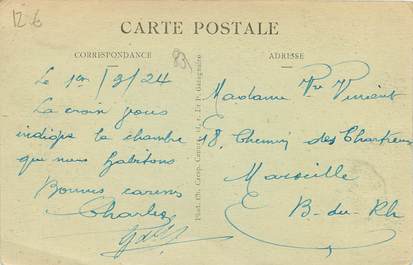 12 €
CARTE POSTALE
CORRESPONDANCE
83
ADRESSE
Le 1er/9/24
La croix vous
indique la chambre
que nous habitons
Bonnes caresses
Charles
Madame Vve Vincent
58, Chemin des Chartreux
Marseille
B-du-Rh